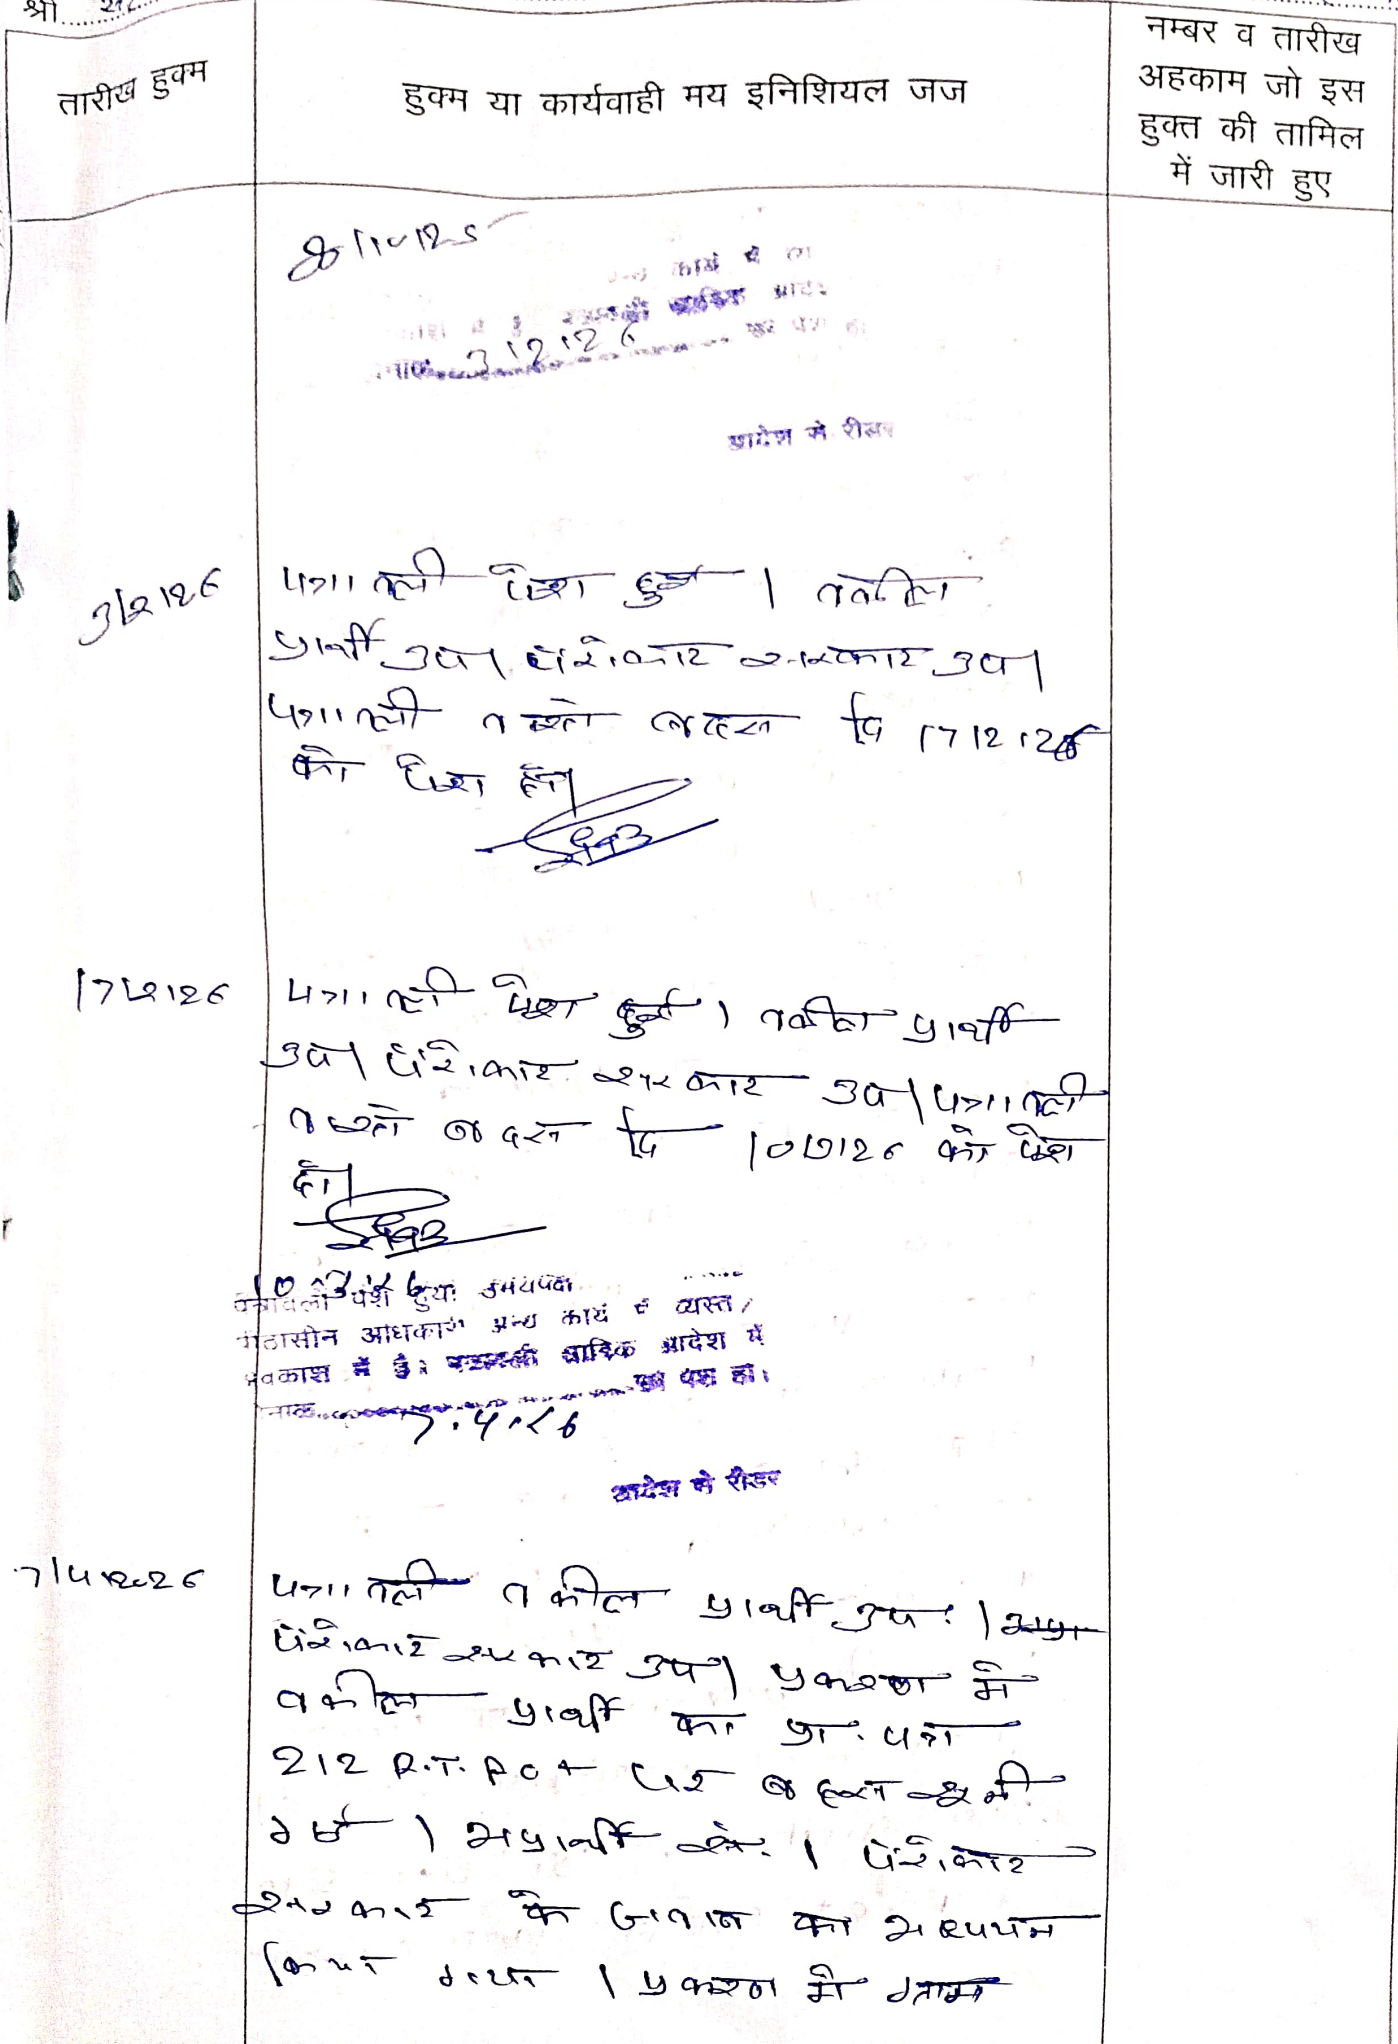 श्री
तारीख हुक्म
हुक्म या कार्यवाही मय इनिशियल जज
नम्बर व तारीख
अहकाम जो इस
हुक्त की तामिल
में जारी हुए
8/10/25
कार्य में
3/2/26
आदेश से रीडर
3/2/26
पत्रावली पेश हुई । वकील
प्रार्थी उप। पैरोकार सरकार उप।
पत्रावली वास्ते बहस दि 17/2/26
को पेश हो।
17/2/26
पत्रावली पेश हुई । वकील प्रार्थी
उप। पैरोकार सरकार उप। पत्रावली
वास्ते बहस दि 10/3/26 को पेश
हो।
10.3.26
पत्रावली पेश हुयी उभयपक्ष
पीठासीन अधिकारी अन्य कार्य में व्यस्त/
अवकाश में है। पत्रावली आदेश में
दिनांक 7.4.26 को पेश हो।
आदेश से रीडर
7/4/2026
पत्रावली वकील प्रार्थी उप. ।
पैरोकार सरकार उप। प्रकरण में
वकील प्रार्थी का प्रा. पत्र
212 R.T. Act पर बहस सुनी
गई । अप्रार्थी सं. 1 पैरोकार
सरकार के जवाब का अध्ययन
किया गया । प्रकरण में ग्राम